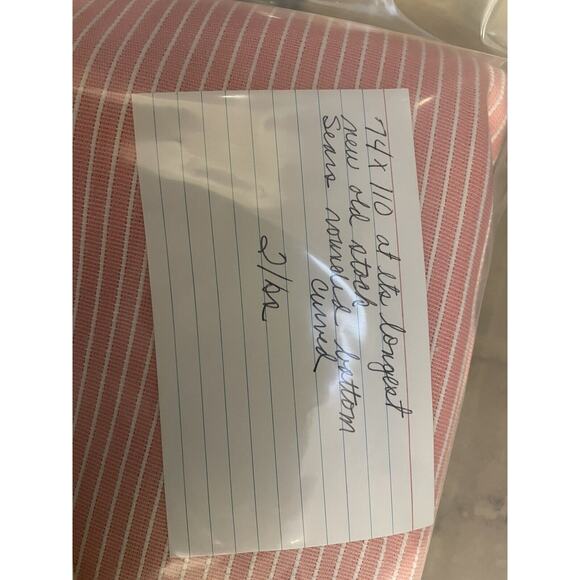 74x 110 at its longest
new old stock
Sears rounded bottom
curved